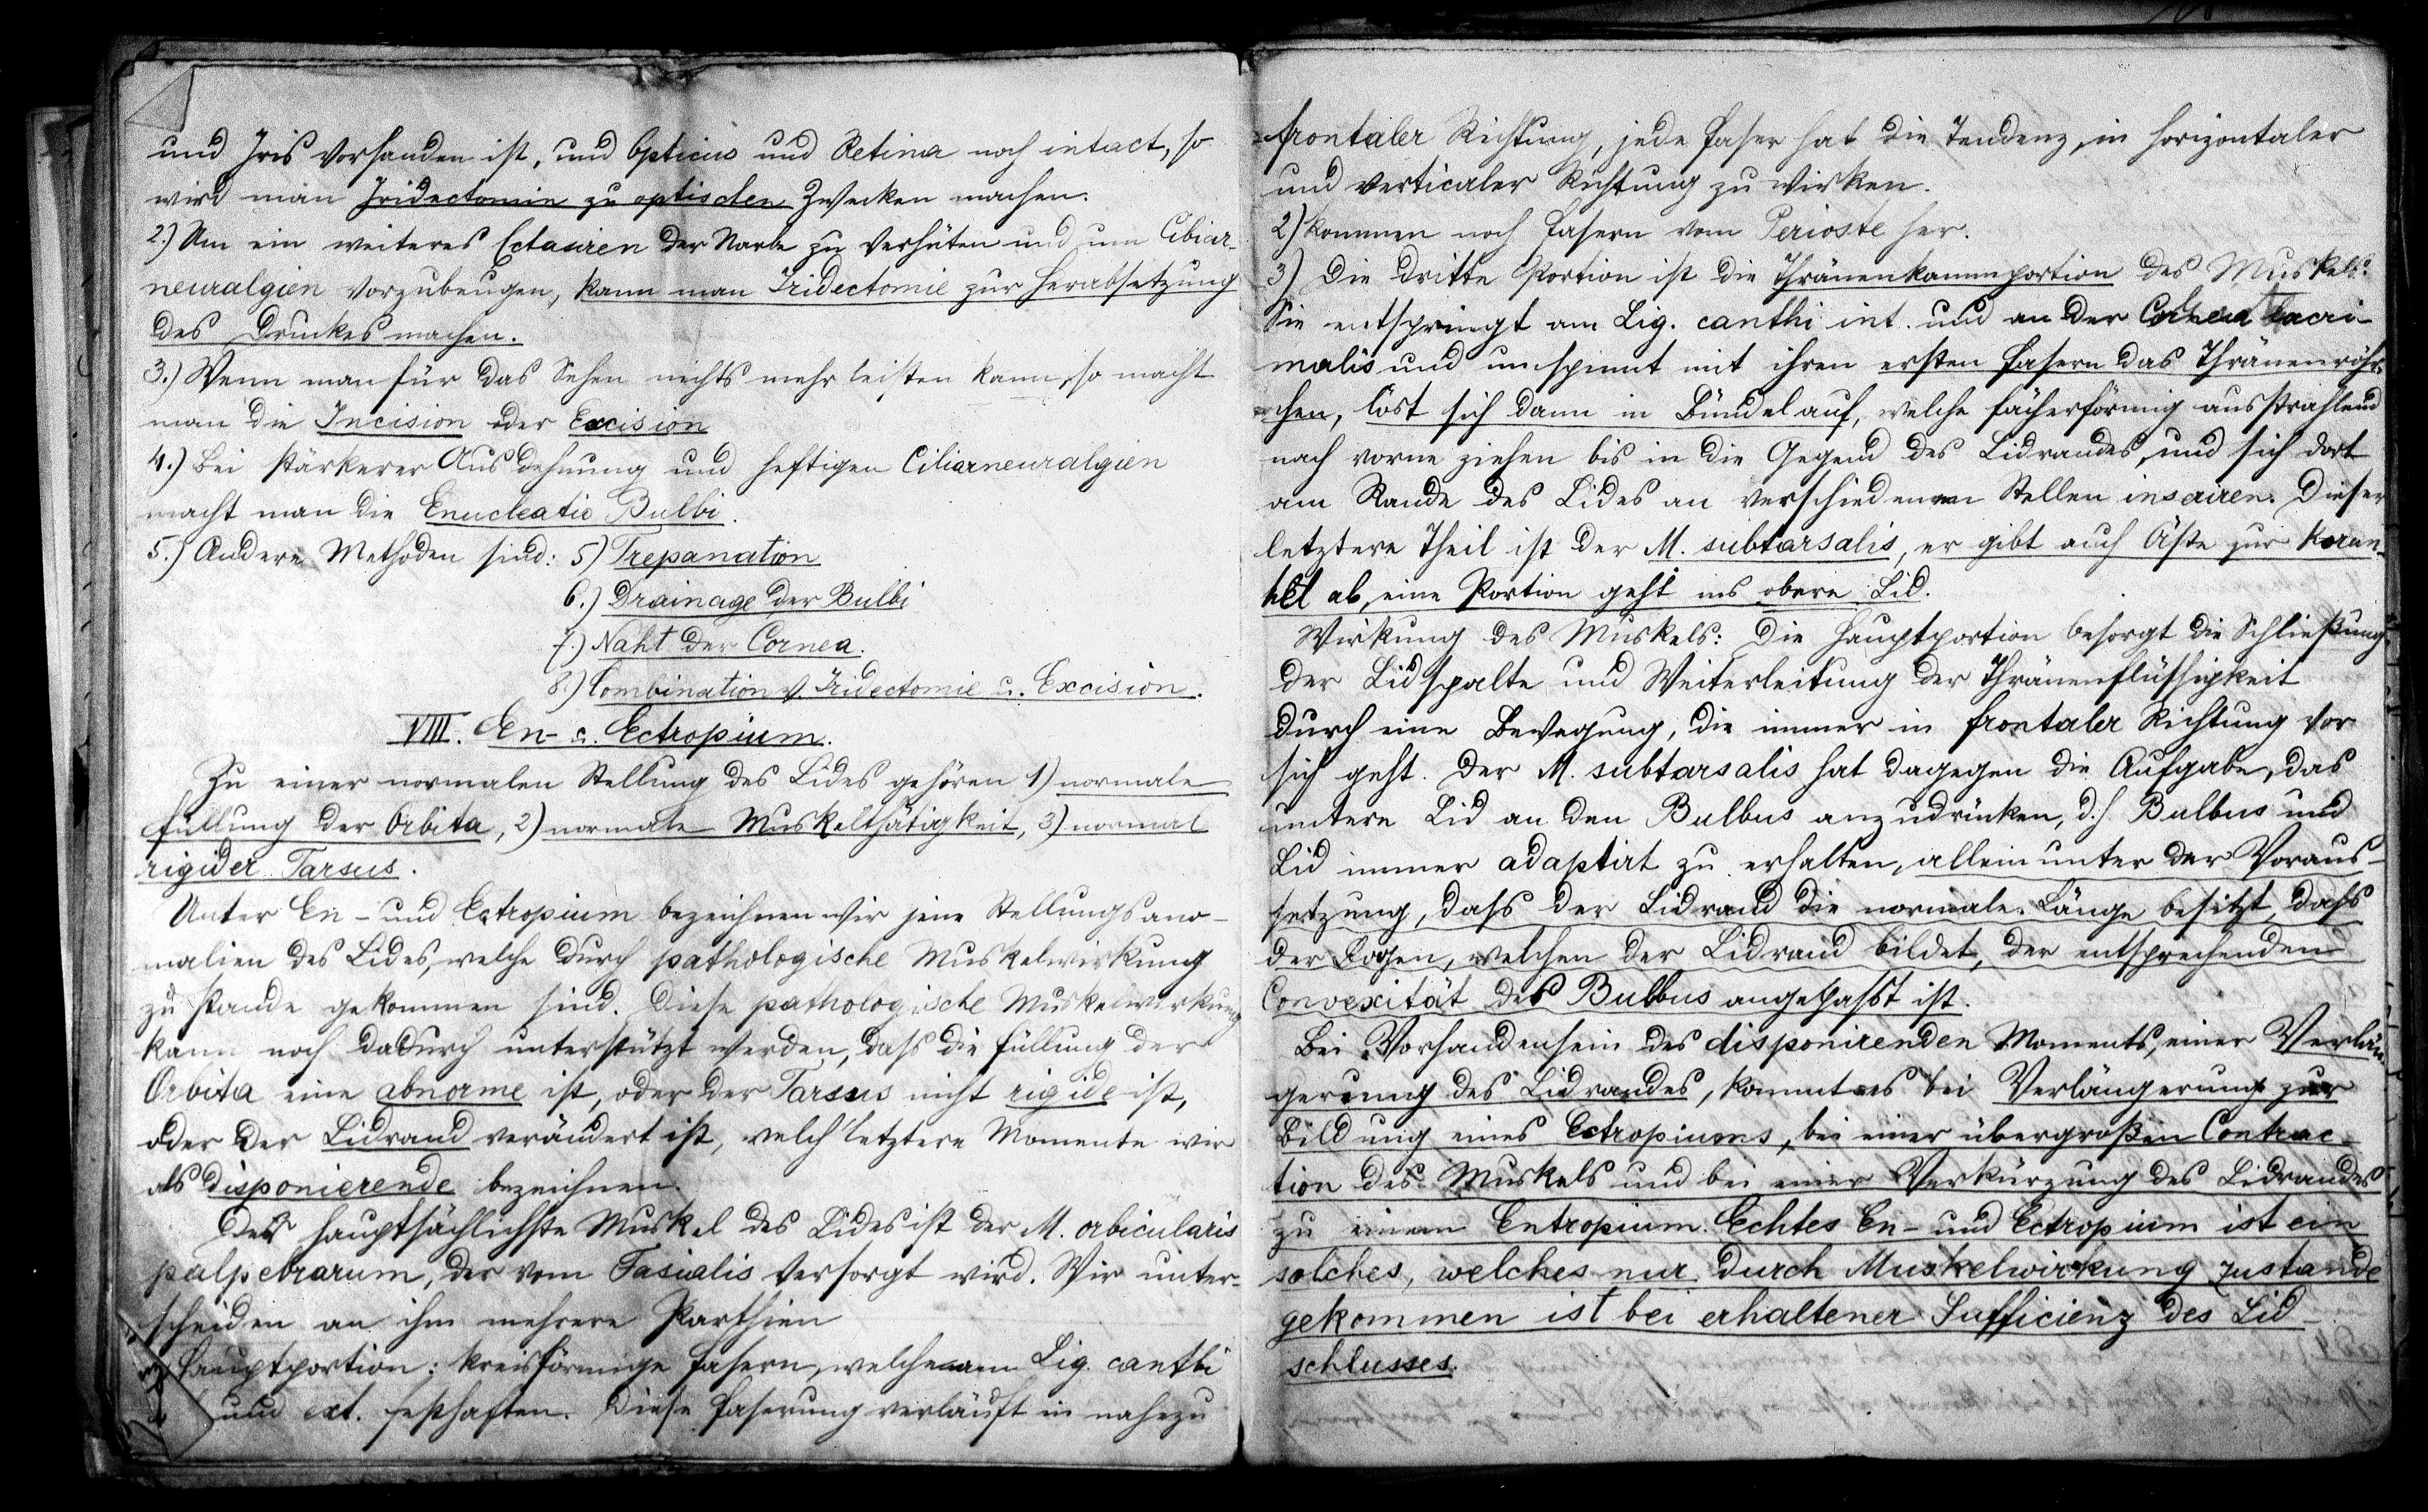 und Iris vorhanden ist, und Opticus und Retina noch intact, so
wird man Iridectomie zu optischen Zwecken machen.
2.) Um ein weiteres Ectasiren der Narbe zu verhüten und um Ciliar-
neuralgien vorzubeugen, kann man Iridectomie zur Herabsetzung
des Druckes machen.
3.) Wenn man für das Sehen nichts mehr leisten kann, so macht
man die Incision oder Excision
4.) Bei stärkerer Ausdehnung und heftigen Ciliarneuralgien
macht man die Enucleatio Bulbi.
5.) Andere Methoden sind: 5) Trepanation
6.) Drainage der Bulbi
7.) Naht der Cornea.
8.) Combination v. Iridectomie u. Excision.
VIII. En- u. Ectropium.
Zu einer normalen Stellung des Lides gehören 1) normale
Füllung der Orbita, 2) normale Muskelthätigkeit, 3) normal
rigider Tarsus.
Unter En- und Ectropium bezeichnen wir jene Stellungsano-
malien des Lides, welche durch pathologische Muskelwirkung
zu stande gekommen sind. Diese pathologische Muskelwirkung
kann noch dadurch unterstützt werden, daß die Füllung der
Orbita eine abnorme ist, oder der Tarsus nicht rigide ist,
oder der Lidrand verändert ist, welch letztere Momente wir
als disponierende bezeichnen.
Der hauptsächlichste Muskel des Lides ist der M. orbicularis
palpebrarum, der vom Fasialis versorgt wird. Wir unter-
scheiden an ihm mehrere Parthien
Hauptportion: kreisförmige Fasern, welche am Lig. canthi
und ext. festhaften. Diese Faserung verläuft in nahezu
frontaler Richtung, jede Faser hat die Tendenz, in horizontaler
und verticaler Richtung zu wirken.
2) kommen noch Fasern vom Perioste her.
3) Die dritte Portion ist die Thränenkammportion des Muskels:
Sie entspringt am Lig. canthi int. und an der lacri-
malis und umspinnt mit ihren ersten Fasern das Thränenröhr-
chen, löst sich dann in Bündel auf, welche fächerförmig ausstrahlend
nach vorne ziehen bis in die Gegend des Lidrandes, und sich dort
am Rande des Lides an verschiedenen Stellen inseriren. Dieser
letztere Theil ist der M. subtarsalis, er gibt auch Äste zur Karun-
kel ab, eine Portion geht ins obere Lid.
Wirkung des Muskels: Die Hauptportion besorgt die Schließung
der Lidspalte und Weiterleitung der Thränenflüssigkeit
durch eine Bewegung, die immer in frontaler Richtung vor
sich geht. Der M. subtarsalis hat dagegen die Aufgabe, das
untere Lid an den Bulbus anzudrücken, d.h. Bulbus und
Lid immer adaptirt zu erhalten, allein unter der Voraus-
setzung, daß der Lidrand die normale Länge besitzt, daß
der Bogen, welchen der Lidrand bildet, der entsprechenden
Convexität des Bulbus angepaßt ist.
Bei Vorhandensein des disponirenden Moments, einer Verlän-
gerung des Lidrandes, kommt es bei Verlängerung zur
Bildung eines Ectropiums, bei einer übergroßen Contrac-
tion des Muskels und bei einer Verkürzung des Lidrandes
zu einem Entropium. Echtes En- und Ectropium ist ein
solches, welches nur durch Muskelwirkung zustande
gekommen ist bei erhaltener Sufficienz des Lid-
schlusses.